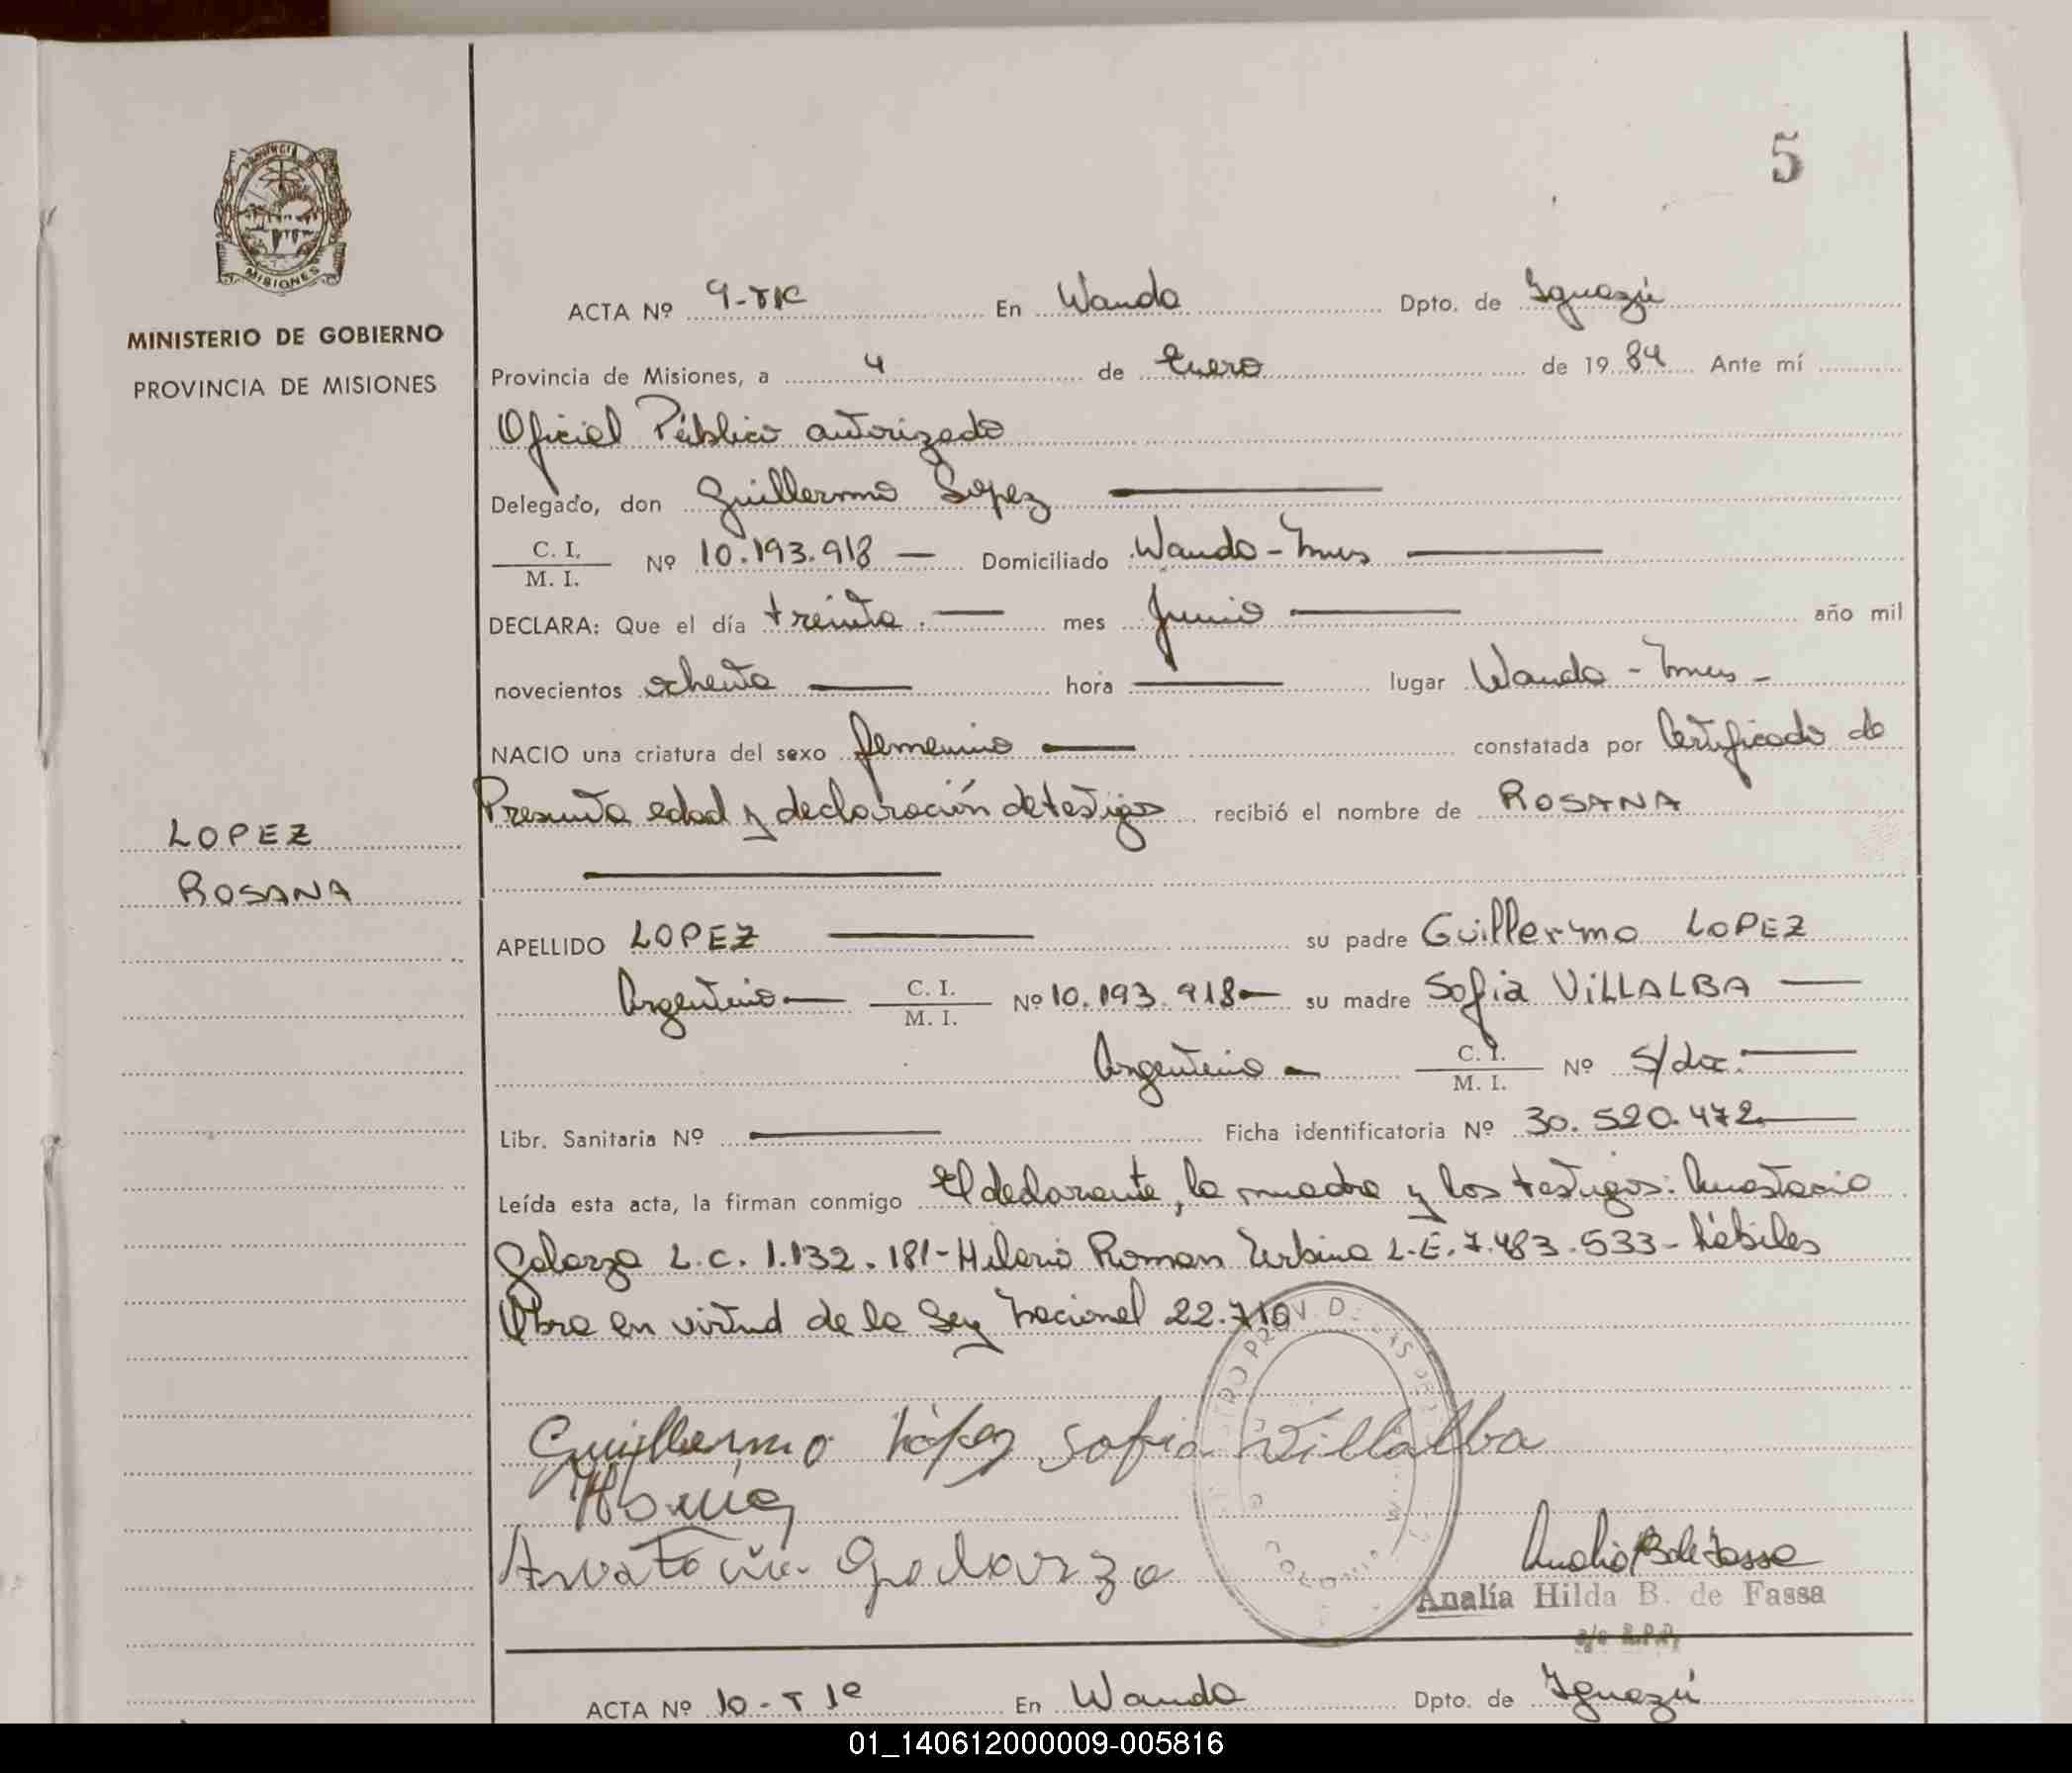 5
PROVINCIA
MISIONES
MINISTERIO DE GOBIERNO
PROVINCIA DE MISIONES
LOPEZ
ROSANA
ACTA Nº 9- En Wanda Dpto. de Iguazú
Provincia de Misiones, a 4 de Enero de 1984 Ante mí
Oficial Público autorizado
Delegado, don Guillermo Lopez
C. I. / M. I. Nº 10.193.918 — Domiciliado Wanda - Mnes
DECLARA: Que el día treinta. — mes Junio — año mil
novecientos ochenta — hora — lugar Wanda - Mnes -
NACIO una criatura del sexo femenino — constatada por Certificado de
Presunta edad y declaración de testigos recibió el nombre de ROSANA
APELLIDO LOPEZ — su padre Guillermo LOPEZ
Argentino — C. I. / M. I. Nº 10.193.918 — su madre Sofia ViLLALBA —
Argentina — C. I. / M. I. Nº S/doc. —
Libr. Sanitaria Nº — Ficha identificatoria Nº 30.520.472 —
Leída esta acta, la firman conmigo El declarante, la madre y los testigos:
Galarza L.C. 1.132.181 - Hilario Roman Urbina L.E. 7.483.533 - hábiles
Obra en virtud de la Ley Nacional 22.710
Guillermo López Sofia Villalba
Galarza
Analía Hilda B. de Fassa
ACTA Nº 10-T 1º En Wanda Dpto. de Iguazú
01_140612000009-005816